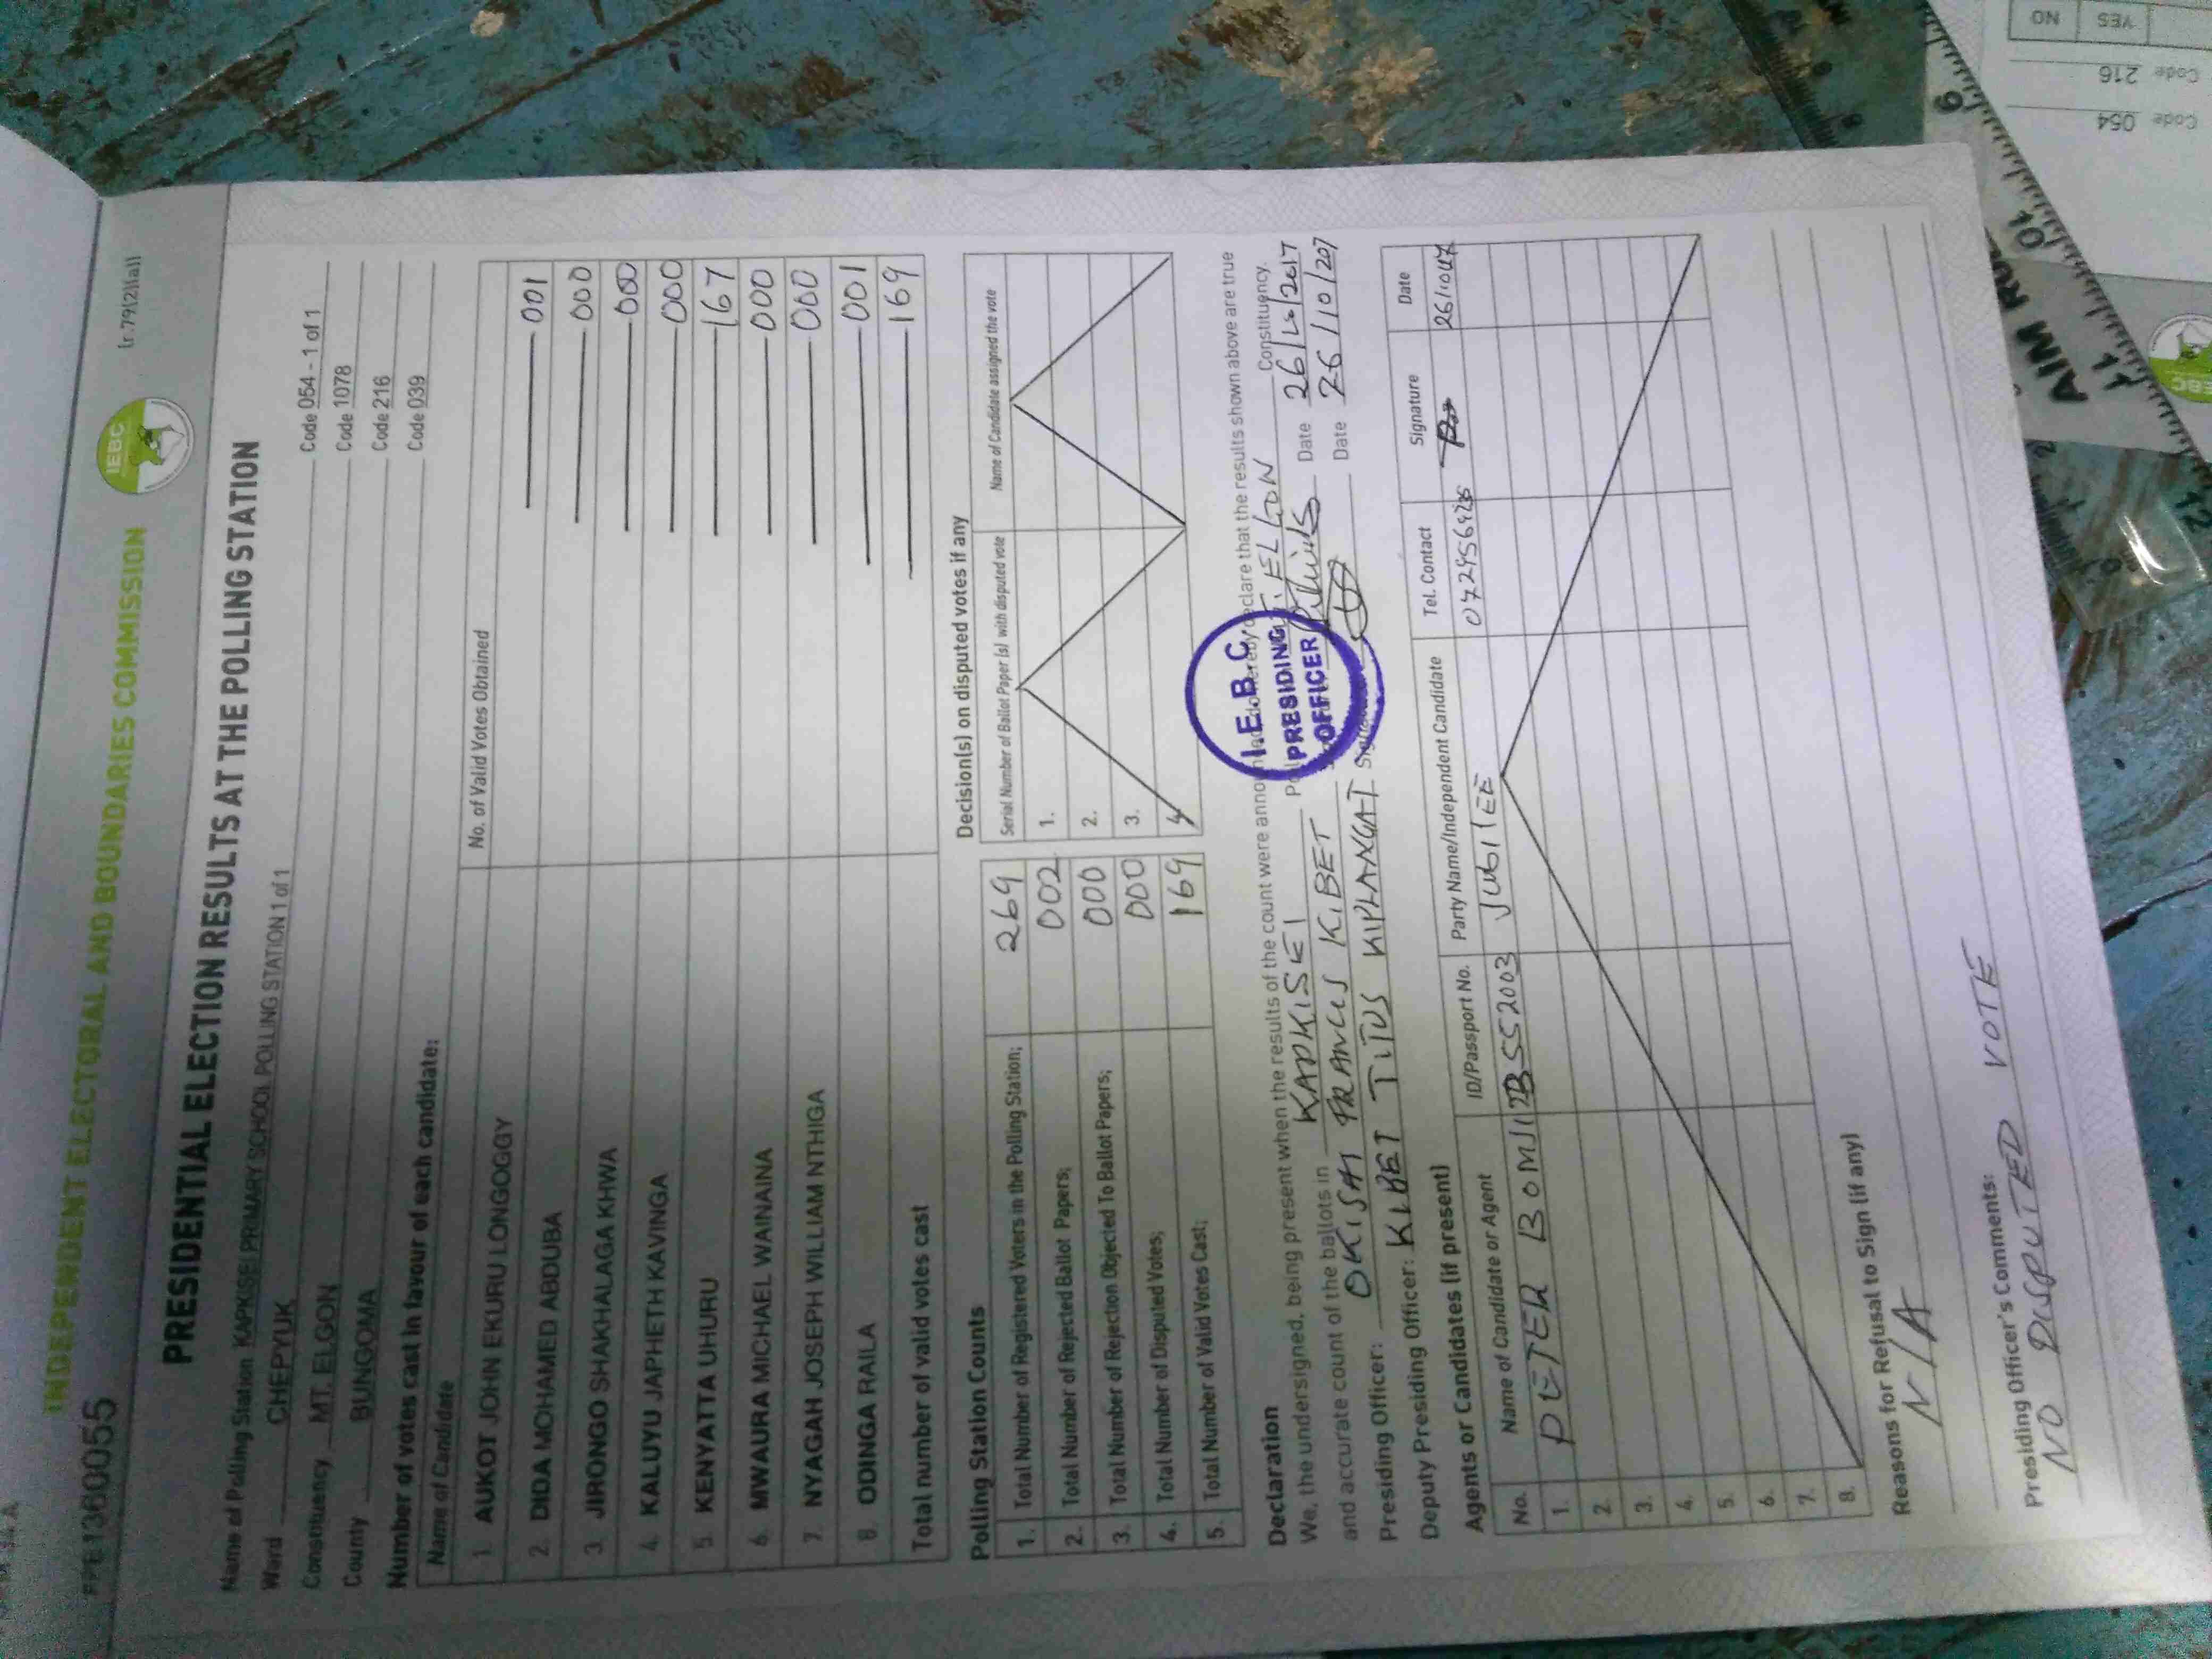 INDEPENDENT ELECTORAL AND BOUNDARIES COMMISSION
IEBC
(r.79(2)(a))
PRESIDENTIAL ELECTION RESULTS AT THE POLLING STATION
Name of Polling Station KAPKISEI PRIMARY SCHOOL POLLING STATION 1 of 1 Code 054 - 1 of 1
Ward CHEPYUK Code 1078
Constituency MT. ELGON Code 216
County BUNGOMA Code 039
Number of votes cast in favour of each candidate:
Name of Candidate No. of Valid Votes Obtained
1. AUKOT JOHN EKURU LONGOGGY 001
2. DIDA MOHAMED ABDUBA 000
3. JIRONGO SHAKHALAGA KHWA 000
4. KALUYU JAPHETH KAVINGA 000
5. KENYATTA UHURU 167
6. MWAURA MICHAEL WAINAINA 000
7. NYAGAH JOSEPH WILLIAM NTHIGA 000
8. ODINGA RAILA 001
Total number of valid votes cast 169
Polling Station Counts
1. Total Number of Registered Voters in the Polling Station; 269
2. Total Number of Rejected Ballot Papers; 002
3. Total Number of Rejection Objected To Ballot Papers; 000
4. Total Number of Disputed Votes; 000
5. Total Number of Valid Votes Cast; 169
Decision(s) on disputed votes if any
Serial Number of Ballot Paper (s) with disputed vote Name of Candidate assigned the vote
1.
2.
3.
4.
Declaration
We, the undersigned, being present when the results of the count were hereby declare that the results shown above are true
and accurate count of the ballots in KAPKISEI ELGON Constituency.
Presiding Officer: OKISAI FRANCIS KIBET Date 26/10/2017
Deputy Presiding Officer: KIBET TITUS KIPLANGAT Date 26/10/207
I.E.B.C.
PRESIDING
OFFICER
Agents or Candidates (if present)
No. Name of Candidate or Agent ID/Passport No. Party Name/Independent Candidate Tel. Contact Signature Date
1. PETER BOMJI JUBILEE
2.
3.
4.
5.
6.
7.
8.
Reasons for Refusal to Sign (if any)
N/A
Presiding Officer's Comments:
NO DISPUTED VOTE
Code 054 Code 216
YES NO